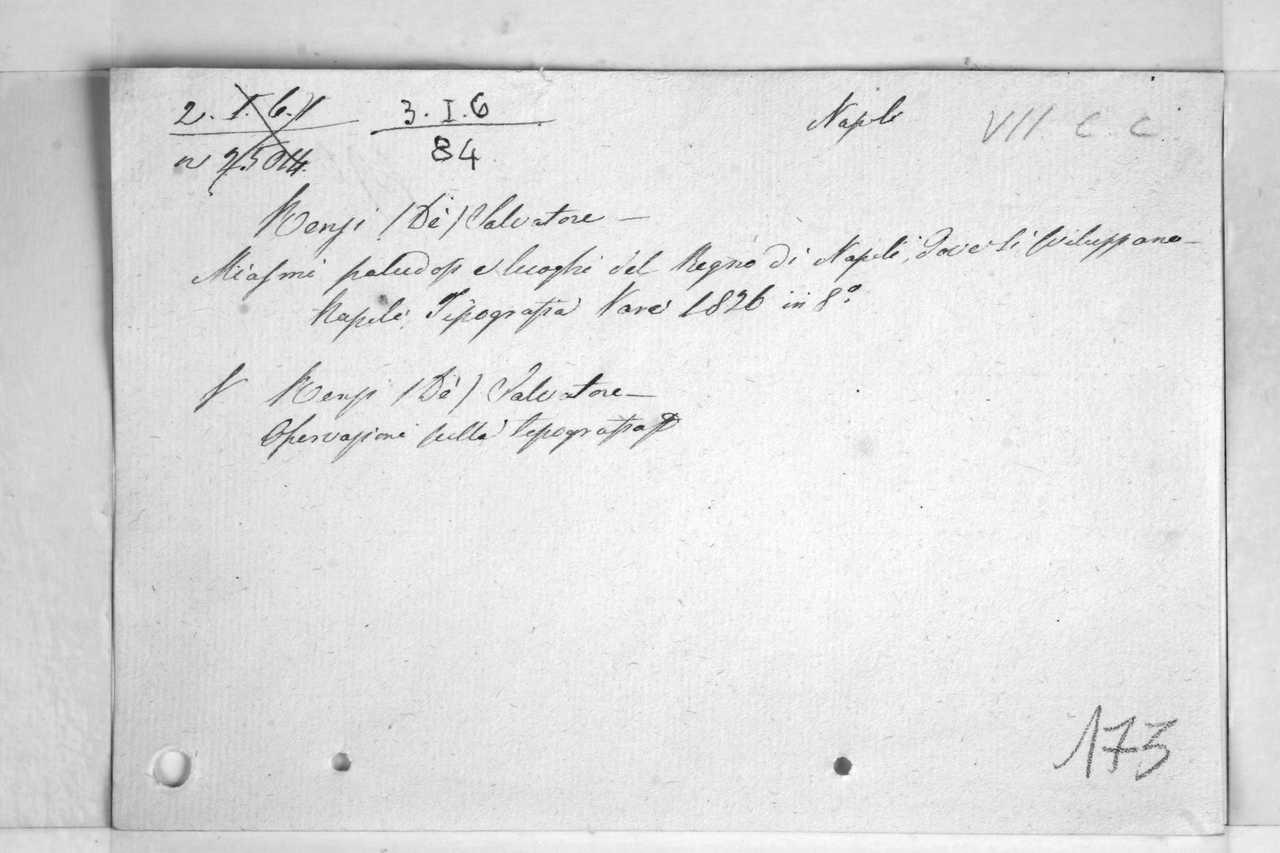 2. I. 6. 11 3. I. 6 Napoli VII C. C.
n 25014 84
Renzi (De) Salvatore –
Miasmi paludosi e luoghi del Regno di Napoli, dove si sviluppano –
Napoli. Tipografia 1826 in 8°
Renzi (De) Salvatore –
Osservazioni sulla topografia
173